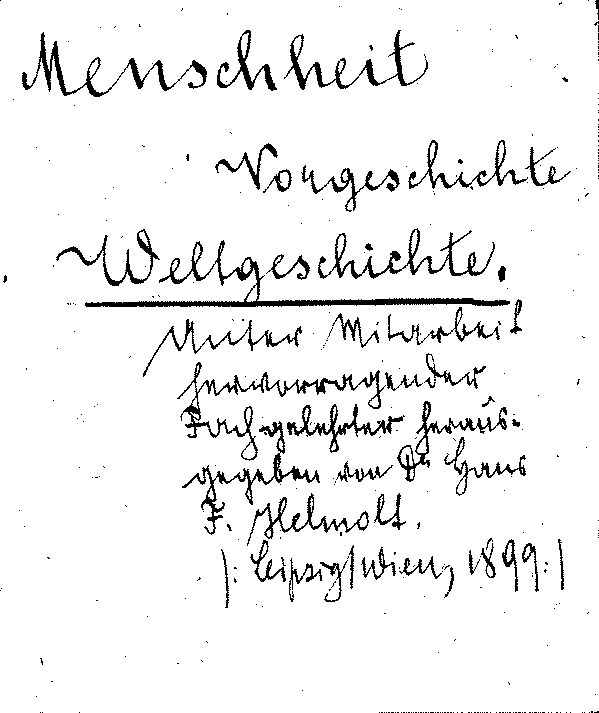 Menschheit
Vorgeschichte
Weltgeschichte.
Unter Mitarbeit
hervorragender
Fachgelehrter heraus-
gegeben von Dr Hans
F. Helmolt.
|: Leipzig/Wien, 1899:|